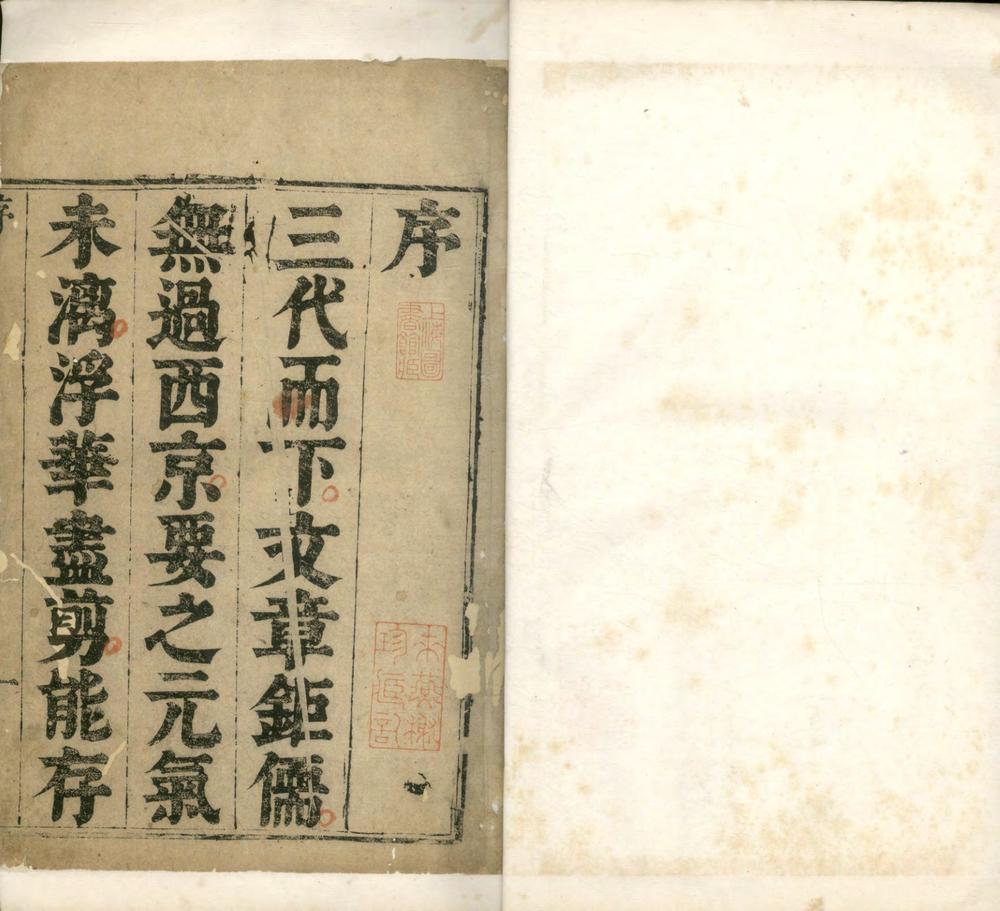 序
三代而下文章鉅儒
無過西京要之元氣
未漓浮華盡剪能存
上海圖書館藏
序
一